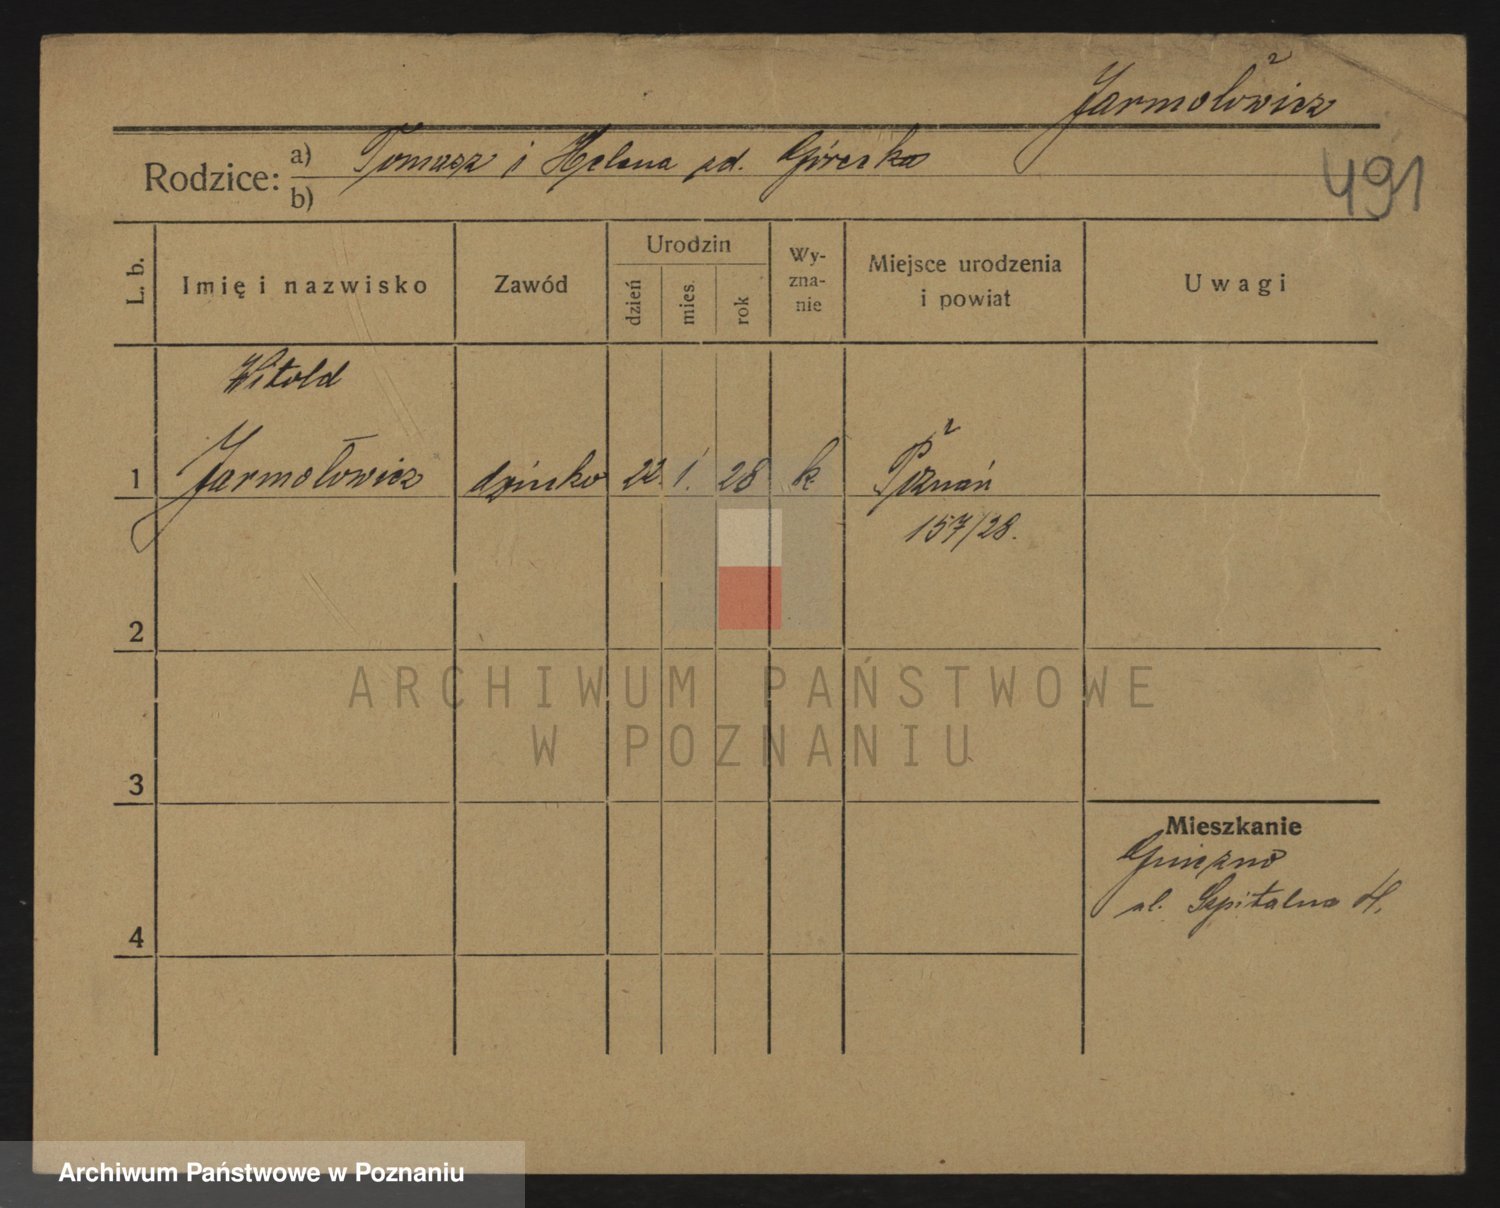 Jarmołowicz
Rodzice: a) Tomasz i Helena zd. Górecka
b)
491
L. b.
Imię i nazwisko
Zawód
Urodzin
dzień
mies.
rok
Wy-
zna-
nie
Miejsce urodzenia
i powiat
Uwagi
Witold
1 Jarmołowicz dziecko 22. 1. 28 k Poznań
157/28.
2
ARCHIWUM PAŃSTWOWE
W POZNANIU
3
Mieszkanie
Gniezno
ul. Szpitalna
4
Archiwum Państwowe w Poznaniu